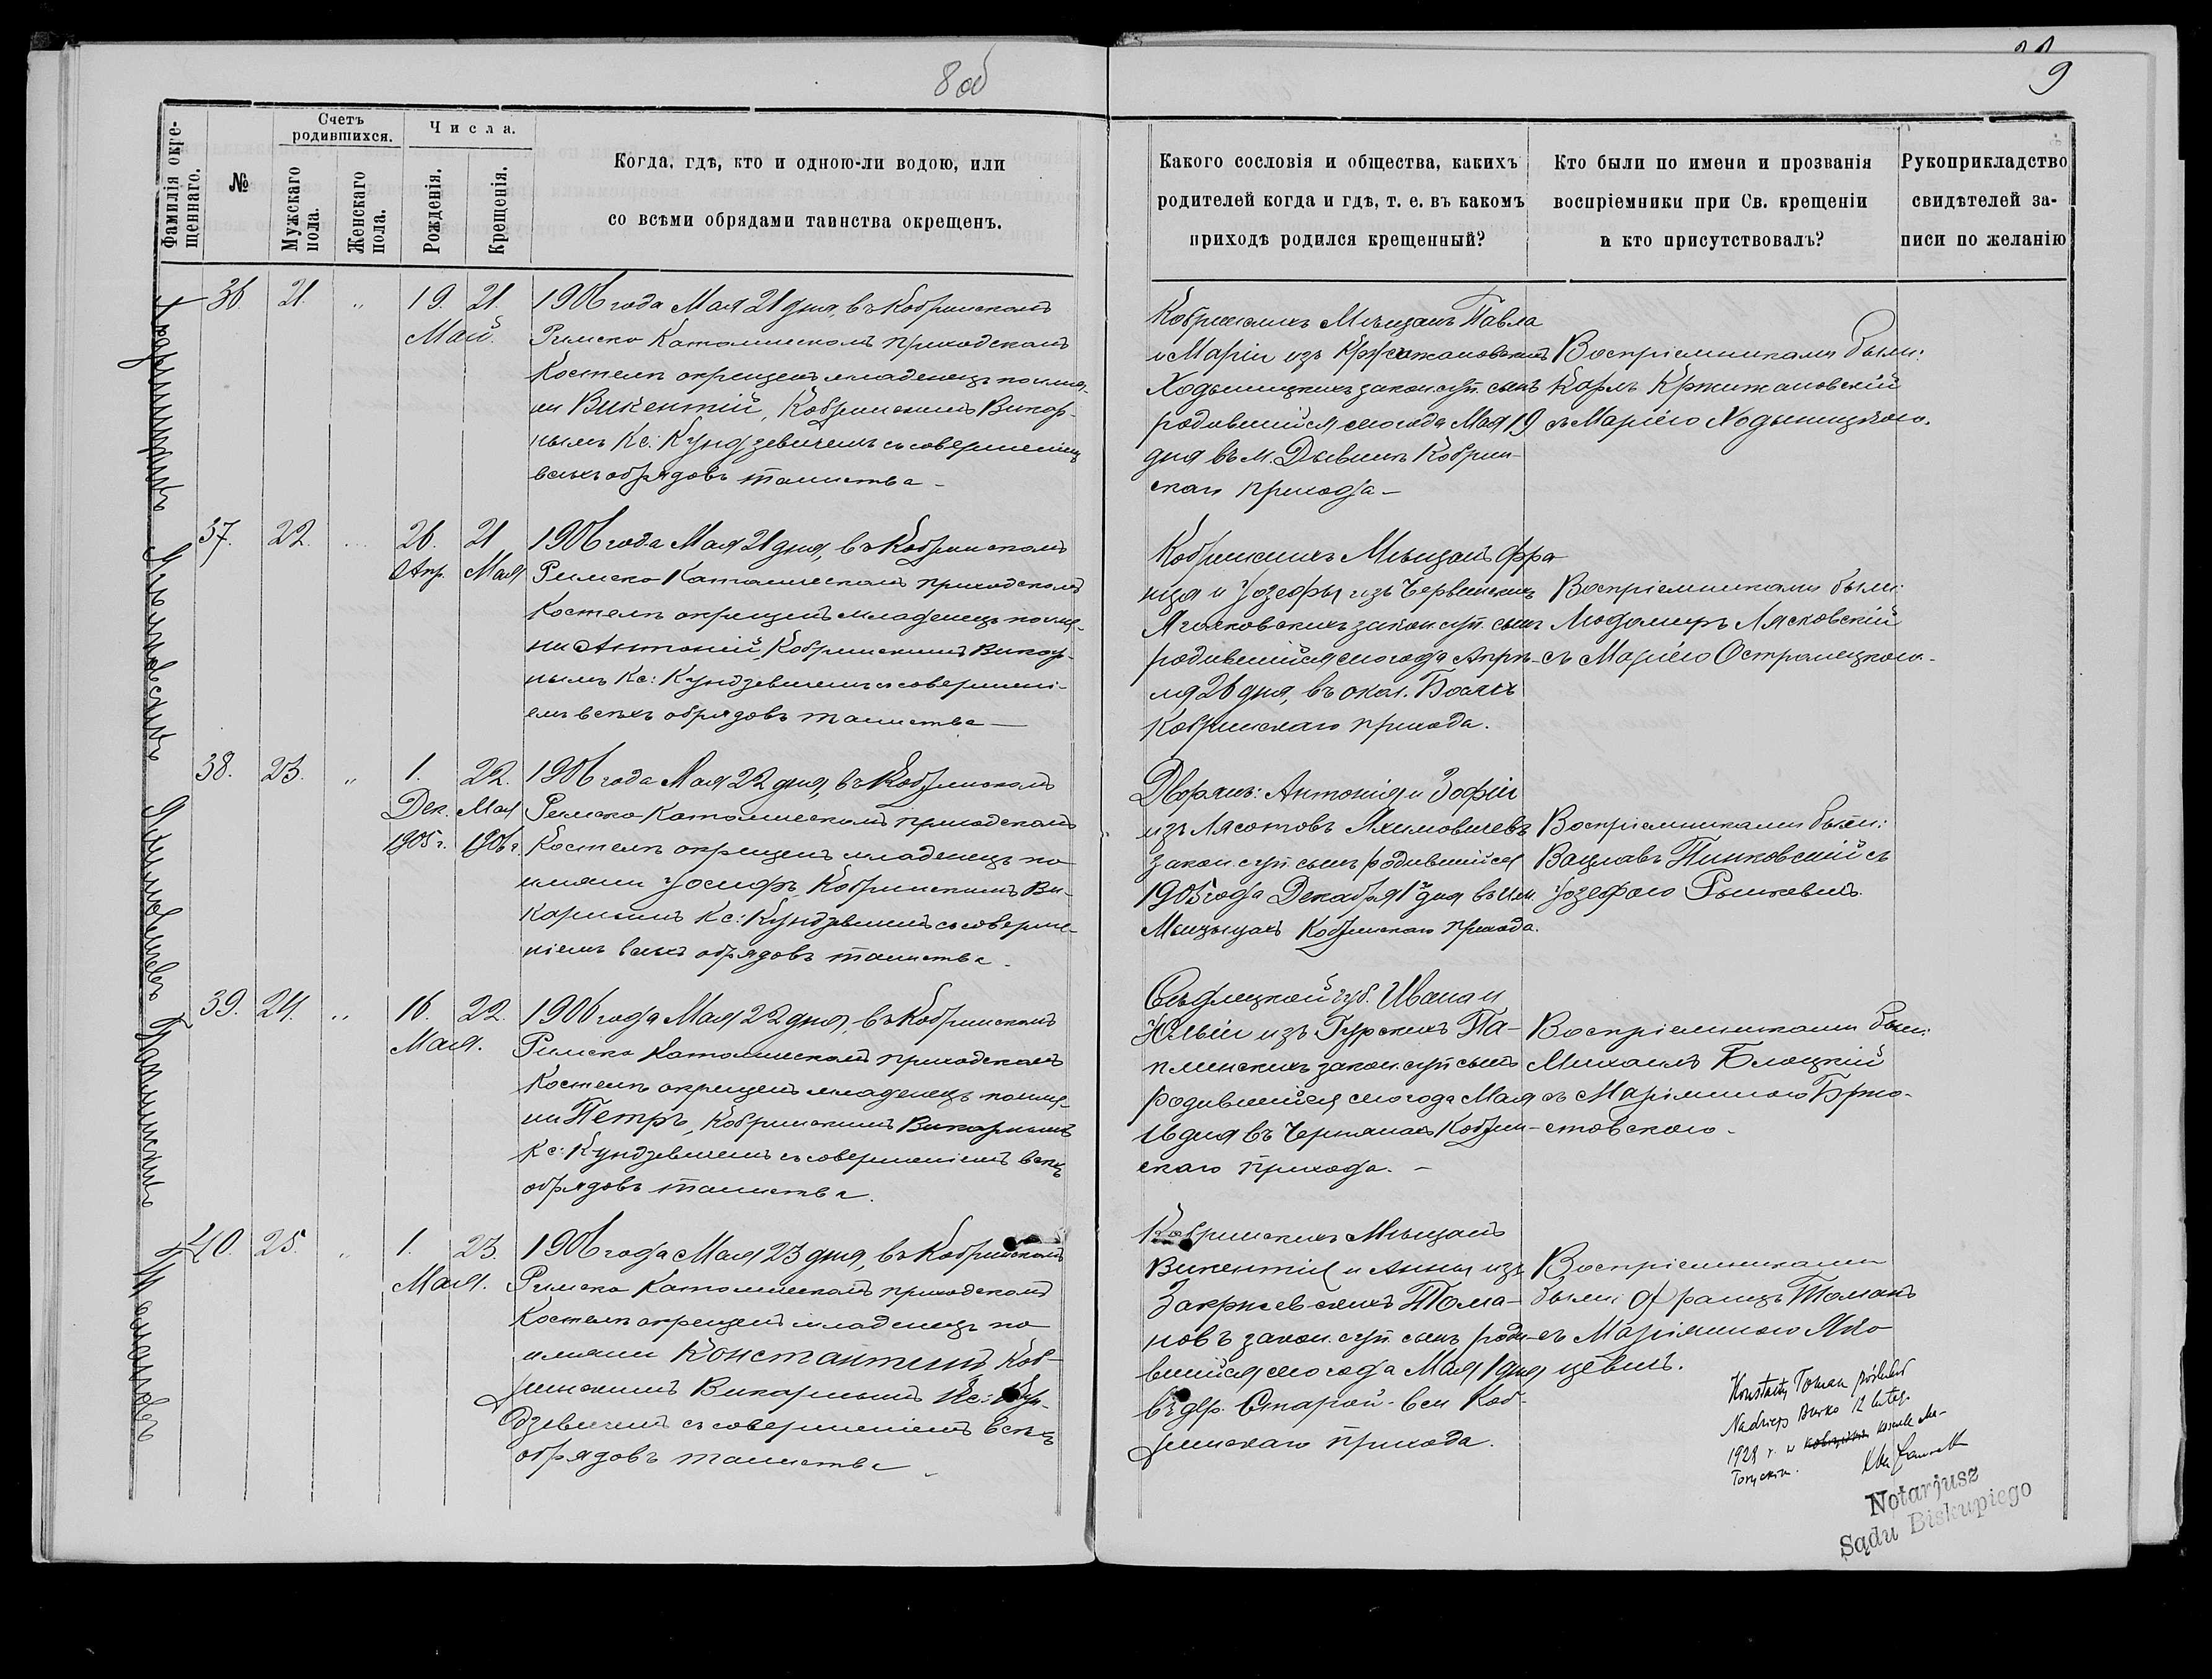 8 об
9
Фамилія окре-
щеннаго.
№
Счетъ
родившихся.
Мужскаго
пола.
Женскаго
пола.
Числа.
Рожденія.
Крещенія.
Когда, гдѣ, кто и одною-ли водою, или
со всѣми обрядами таинства окрещенъ.
Какого сословія и общества, какихъ
родителей когда и гдѣ, т. е. въ какомъ
приходѣ родился крещенный?
Кто были по имени и прозванія
воспріемники при Св. крещеніи
и кто присутствовалъ?
Рукоприкладство
свидѣтелей за-
писи по желанію
36. 21. „ 19. 21.
Май.
1906 года Мая 21 дня, въ Кобринскомъ
Римско Католическомъ приходскомъ
Костелѣ окрещенъ младенецъ по име-
ни Викентій, Кобринскимъ Викар-
нымъ Кс: Кундзевичемъ съ совершеніемъ
всѣхъ обрядовъ таинства –
Кобринскихъ Мѣщанъ Павла
и Маріи изъ Кржижановскихъ
Ходыницкихъ закон. суп. сынъ
родившійся сего года Мая 19
дня въ м. Дывинѣ Кобрин-
скаго прихода –
Воспріемниками были:
Карлъ Кржижановскій
съ Маріею Ходыницкою.
37. 22. 26. 21
Апр. Мая
1906 года Мая 21 дня, въ Кобринскомъ
Римско Католическомъ приходскомъ
Костелѣ окрещенъ младенецъ по име-
ни Антоній, Кобринскимъ Викар-
нымъ Кс: Кундзевичемъ съ совершені-
емъ всѣхъ обрядовъ таинства –
Кобринскихъ Мѣщанъ Фра-
нца и Іозефы изъ Червинскихъ
закон. суп. сынъ
родившійся сего года Апрѣ-
ля 26 дня, въ окол.
Кобринскаго прихода.
Воспріемниками были:
Лясковскій
съ Маріею Остромецкою.
38. 23. „ 1. 22.
Дек. Мая
1905 г. 1906 г.
1906 года Мая 22 дня, въ Кобринскомъ
Римско Католическомъ приходскомъ
Костелѣ окрещенъ младенецъ по
имени Іосифъ, Кобринскимъ Ви-
карнымъ Кс: Кундзевичемъ съ соверше-
ніемъ всѣхъ обрядовъ таинства.
Дворянъ: Антонія и Зофіи
изъ Лясотовъ Яхимовичевъ
закон. суп. сынъ родившійся
1905 года Декабря 1 дня въ им.
Кобринскаго прихода.
Воспріемниками были:
Вацлавъ Пинковскій съ
Іозефою
39. 24. „ 16. 22.
Мая.
1906 года Мая 22 дня, въ Кобринскомъ
Римско Католическомъ приходскомъ
Костелѣ окрещенъ младенецъ по име-
ни Петръ, Кобринскимъ Викарнымъ
Кс: Кундзевичемъ съ совершеніемъ всѣхъ
обрядовъ таинства.
Сѣдлецкой губ. Ивана и
Юліи изъ Гурскихъ Па-
плинскихъ закон. суп. сынъ
родившійся сего года Мая
16 дня въ Чернянахъ Кобрин-
скаго прихода. –
Воспріемниками были:
Михаилъ Блоцкій
съ Маріянною Бржо-
стовскою.
40. 25. „ 1. 23.
Мая.
1906 года Мая 23 дня, въ Кобринскомъ
Римско Католическомъ приходскомъ
Костелѣ окрещенъ младенецъ по
имени Константинъ, Коб-
ринскимъ Викарнымъ Кс: Кун-
дзевичемъ съ совершеніемъ всѣхъ
обрядовъ таинства
Кобринскихъ Мѣщанъ
Викентія и Анны изъ
Закржевскихъ Тома-
новъ закон. суп. сынъ роди-
вшійся сего года Мая 1 дня
въ дер. Старой-вси Коб-
ринскаго прихода.
Воспріемниками
были Францъ Томанъ
съ Маріянною Яко-
цевичъ.
Konstanty Toman poślubił
Nadzieję Burko 12 luteg.
1928 r. w
Notarjusz
Sądu Biskupiego